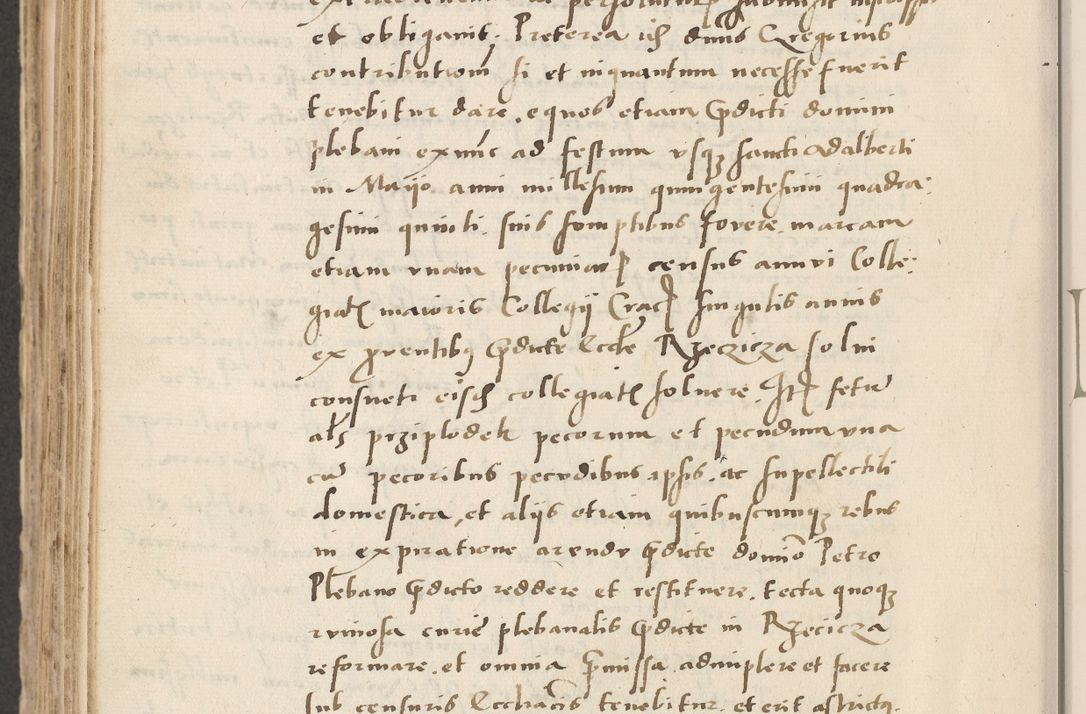 et obliganit. Preterea idem dnus Gregorius
contributionem si et inquantum necesse fuerit
tenebitur dare, equos etiam predicti domini
plebani exnunc ad festum usque sancti Adalberti
in Maijo anni millesimi quingentesimi quadra:
gesimi quinti suis sumptibus fovere, marcam
etiam unam pecuniarum census annui Colle:
giatis maioris Collegij Crac singulis annis
ex proventibus predicte Eccle Rzeczicza solui
consueti eisdem collegiatis soluere. Item fetum
als prziplodek pecorum et pecudum una
cum pecoribus pecudibus ipsis, ac supellectili
domestica, et alijs etiam quibuscumque rebus
in expiratione arende predicte domino Petro
Plebano predicto reddere et restituere, tecta quoque
ruinosa curie plebanalis predicte in Rzecicza
reformare, et omnia premissa adimplere et facere
sub censuris Ecclesiasticis tenebitur et erit astrictus.